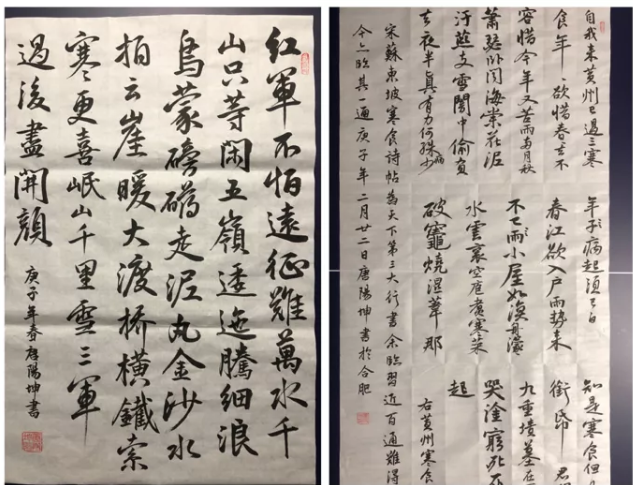 紅軍不怕遠征難萬水千
山只等閑五嶺逶迤騰細浪
烏蒙磅礴走泥丸金沙水
拍云崖暖大渡桥橫鐵索
寒更喜岷山千里雪三軍
過後盡開顏
庚子年春唐陽坤書
自我来黄州已過三寒
食年〻欲惜春〻去不
容惜今年又苦雨兩月秋
蕭瑟卧闻海棠花泥
汙燕支雪闇中偷負
去夜半真有力何殊少
年子病起須已白
春江欲入户雨势来
不已雨小屋如漁舟濛〻
水雲裏空庖煮寒菜
破竈燒濕葦那
知是寒食但
銜帋 君
九重墳墓在
哭塗窮死
起
右黄州寒食
宋蘇東坡寒食詩帖為天下第三大行書余臨習近百通難得
今臨其一通庚子年二月廿二日唐陽坤書於合肥